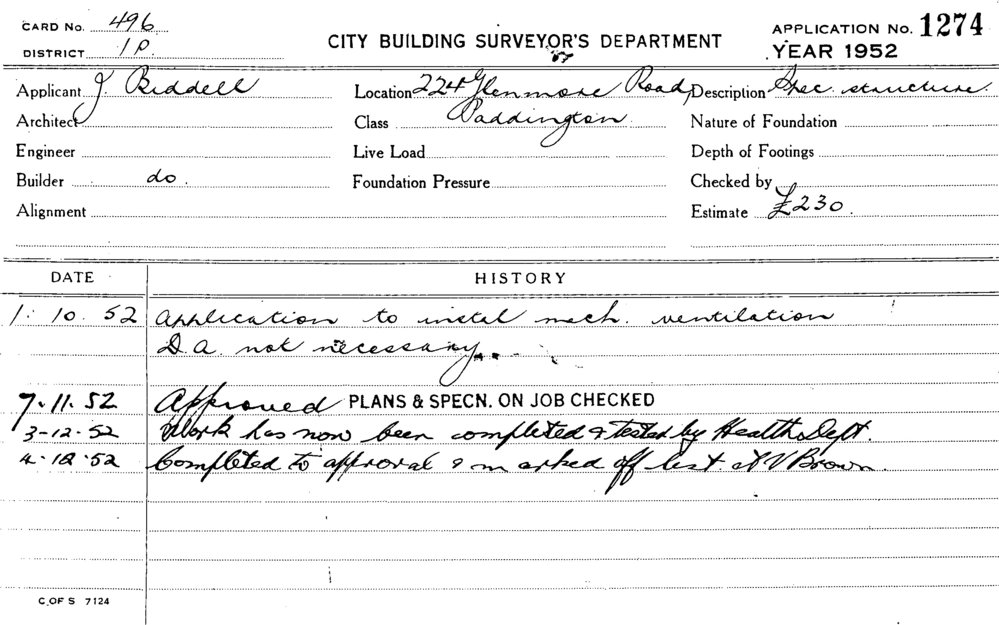 CARD No. 496
APPLICATION No. 1274
DISTRICT 1P.
CITY BUILDING SURVEYOR'S DEPARTMENT
YEAR 1952
Applicant J. Biddell
Location 224 Glenmore Road,
Description Spec. structure.
Architect
Class Paddington
Nature of Foundation
Engineer
Live Load
Depth of Footings
Builder do.
Foundation Pressure
Checked by
Alignment
Estimate £230.
DATE HISTORY
1. 10. 52 Application to instal mech. ventilation
D.A. not necessary.
7.11.52 Approved PLANS & SPECN. ON JOB CHECKED
3-12-52 Work has now been completed & tested by Health Dept.
4.12.52 Completed to approval & marked off list. V Brown.
C OF S 7124